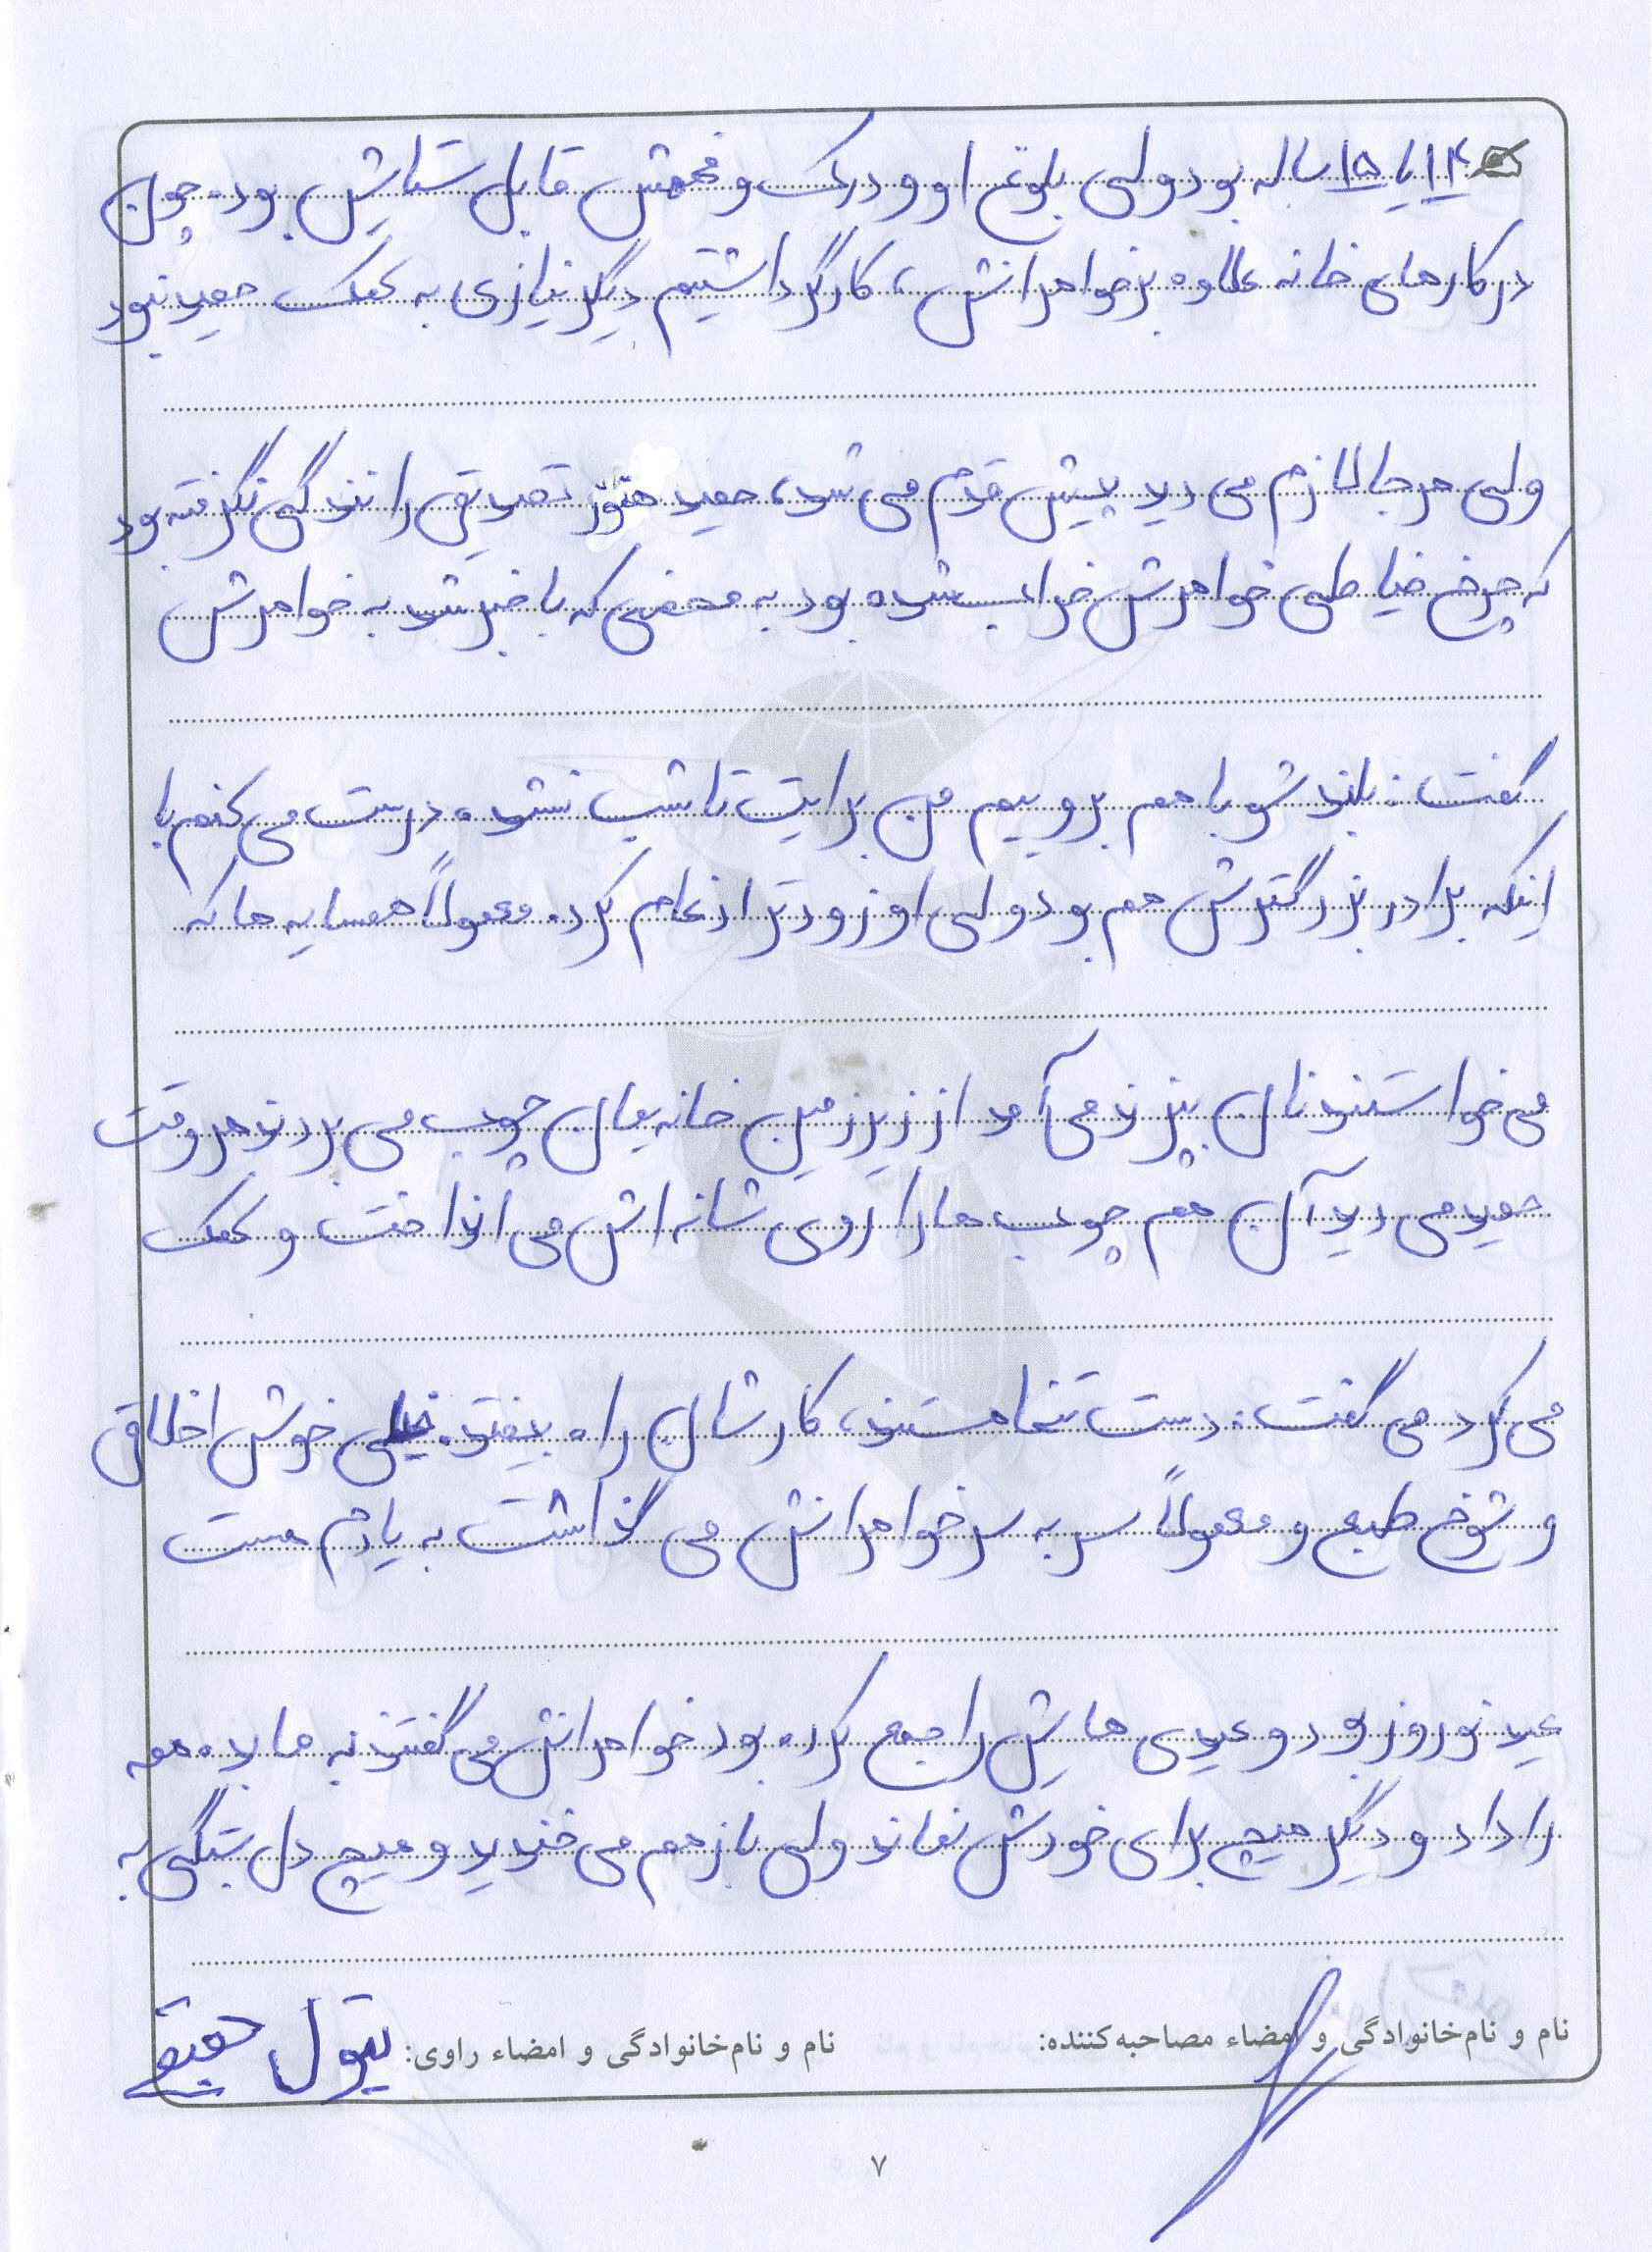 ۱۴ یا ۱۵ ساله بود ولی بلوغ او و درک و فهمش قابل ستایش بود. چون
در کارهای خانه علاوه بر خواهرانش، کارگر داشتیم دیگر نیازی به کمک حمید نبود
ولی هر جا لازم می دید پیش قدم می شد، حمید هنوز تصدیق رانندگی نگرفته بود
که چرخ خیاطی خواهرش خراب شده بود به محضی که با خبر شد به خواهرش
گفت: بلند شو با هم برویم من برایت تا شب نشده درست می کنم با
اینکه برادر بزرگترش هم بود ولی او زودتر انجام کرد. معمولاً همسایه ها که
می خواستند نان بپزند می آمد از زیرزمین خانه یمان چوب می بردند هر وقت
حمید می دید آن هم چوب ها را روی شانه اش می انداخت و کمک
می کرد می گفت: دست تنها هستند، کارشان راه بیفتد. خیلی خوش اخلاق
و شوخ طبع و معمولاً سر به سر خواهرانش می گذاشت به یادم هست
عید نوروز بود و عیدی هایش را جمع کرده بود خواهرانش می گفتند به ما بده همه
را داد و دیگر هیچ برای خودش نماند ولی باز هم می خندید و هیچ دل بستگی به
نام و نام‌خانوادگی و امضاء مصاحبه‌کننده:
نام و نام‌خانوادگی و امضاء راوی: بتول
۷